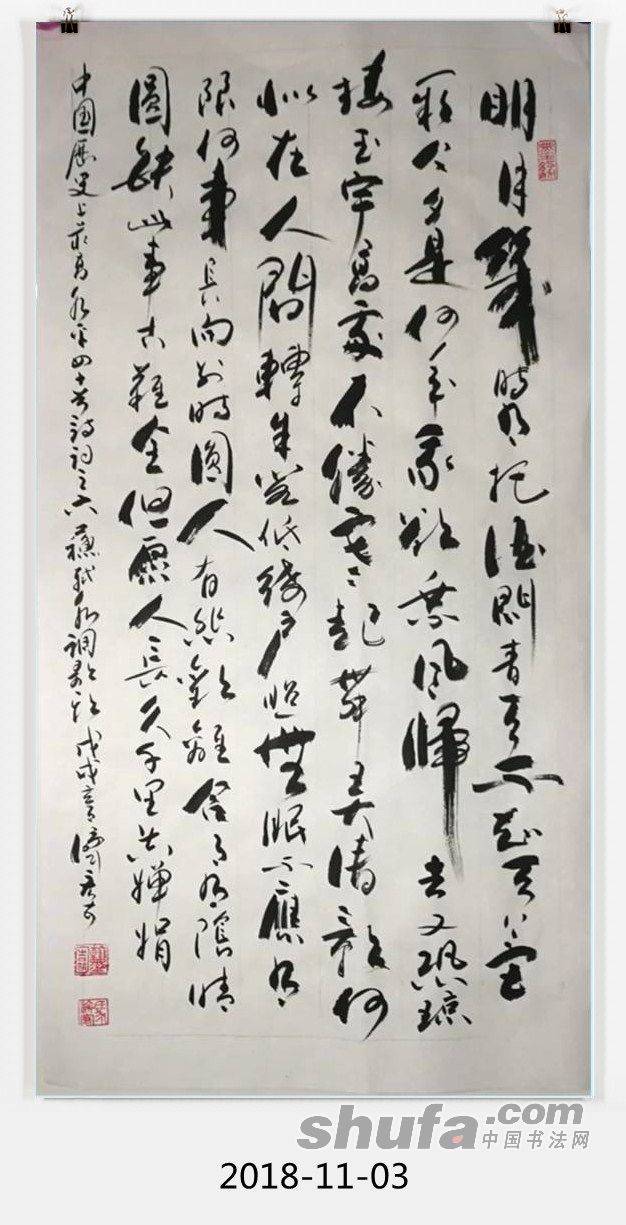 明月幾時有把酒問青天不知天上宮
闕今夕是何年我欲乘風歸去又恐瓊
樓玉宇高處不勝寒起舞弄清影何
似在人間轉朱閣低綺戶照無眠不應有
恨何事長向別時圓人有悲歡離合月有陰晴
圓缺此事古難全但願人長久千里共嬋娟
中国歷史上最有水平四十首詩詞之六蘇軾水調歌頭戊戌
shufa.com
中国书法网
2018-11-03